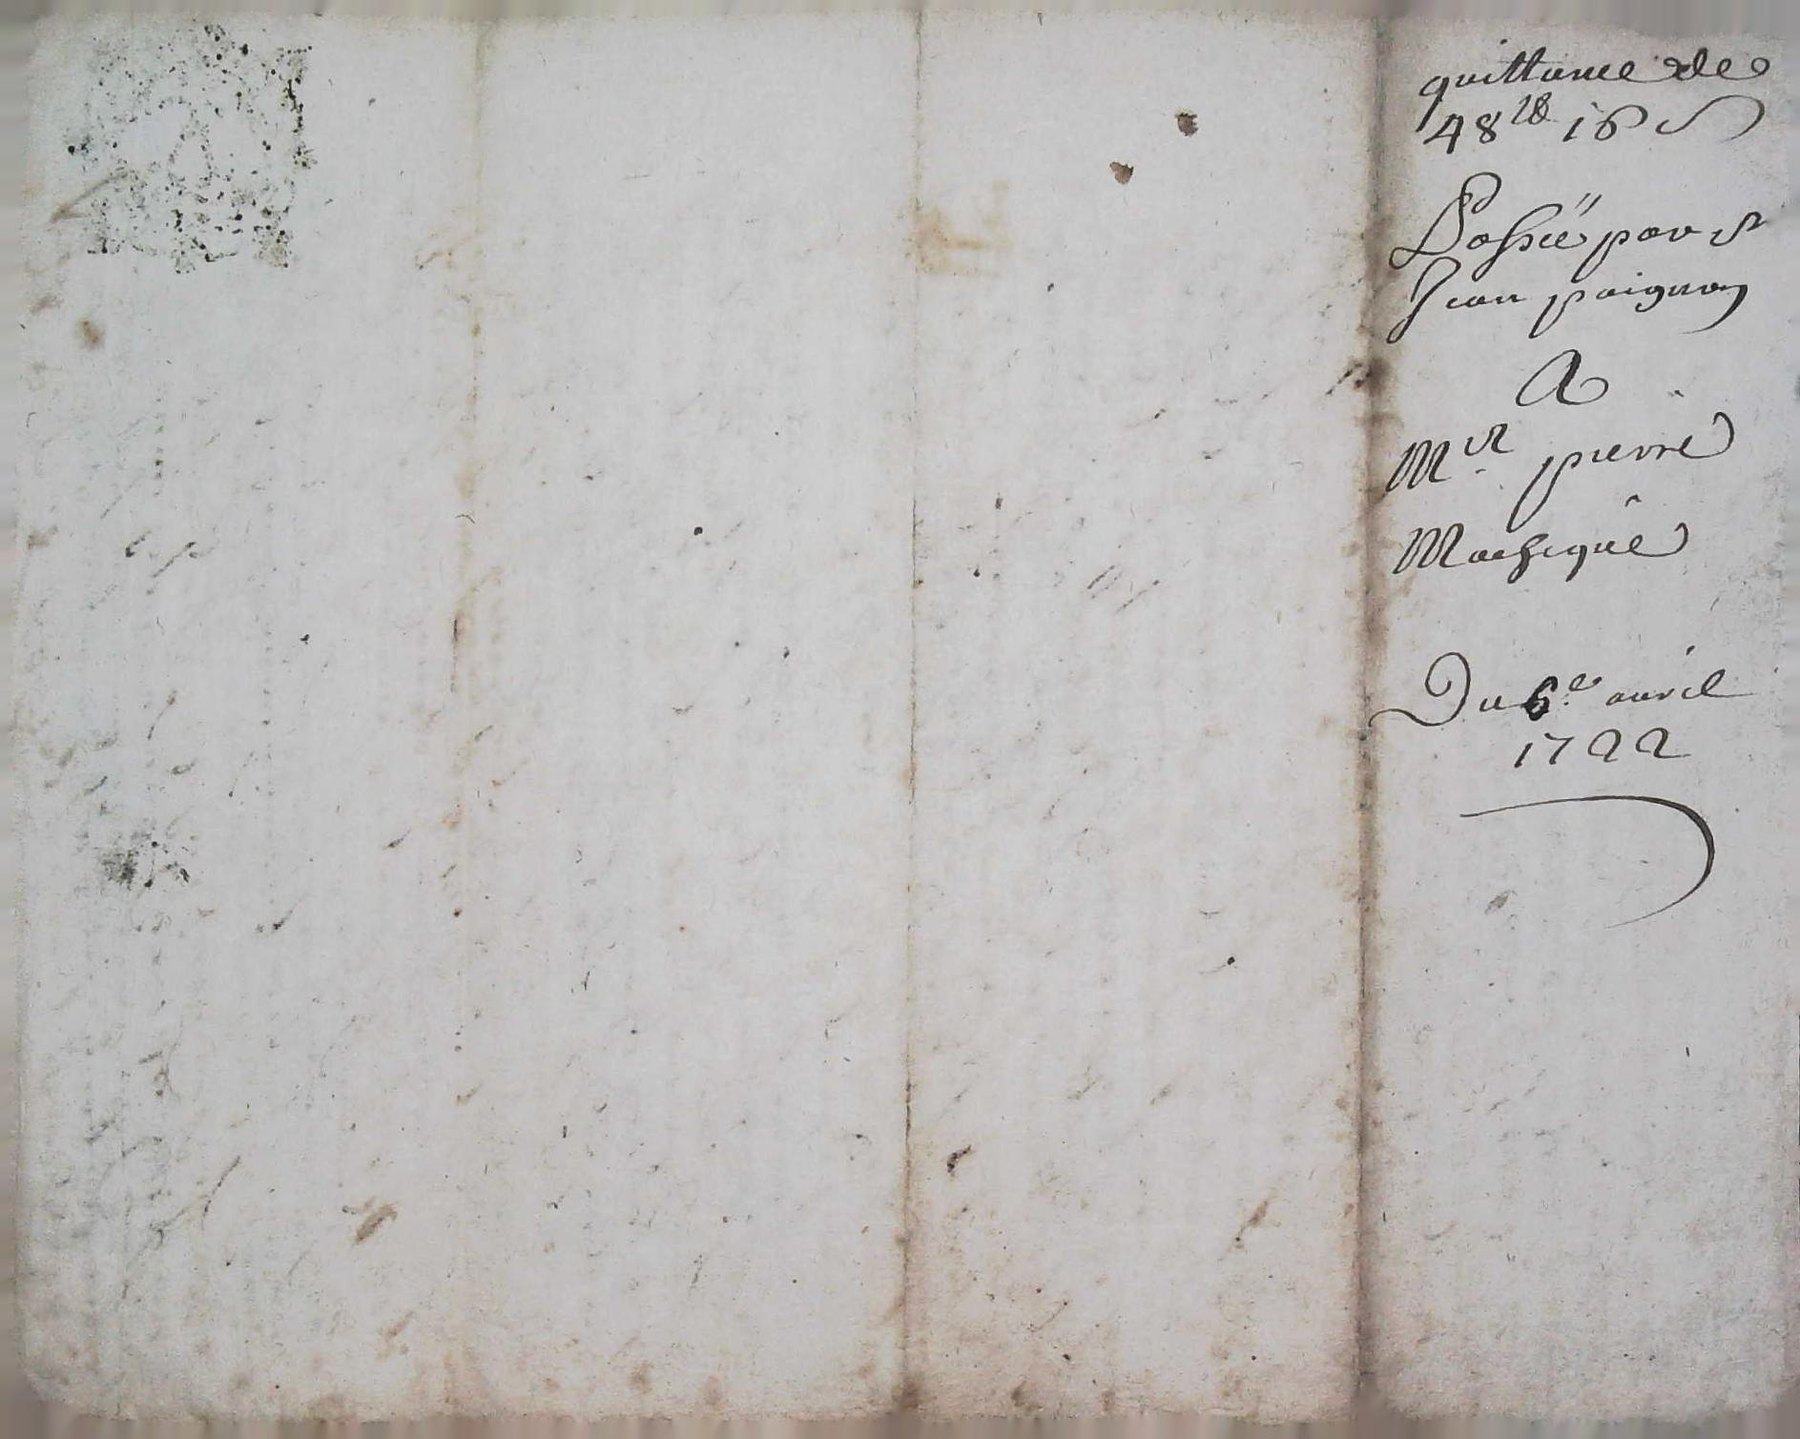 quittance de
48ᵗᵗ 16 s
Passé par sʳ
Jean paignon
A
Mʳ pierre
Du 6ᵉ auril
1722